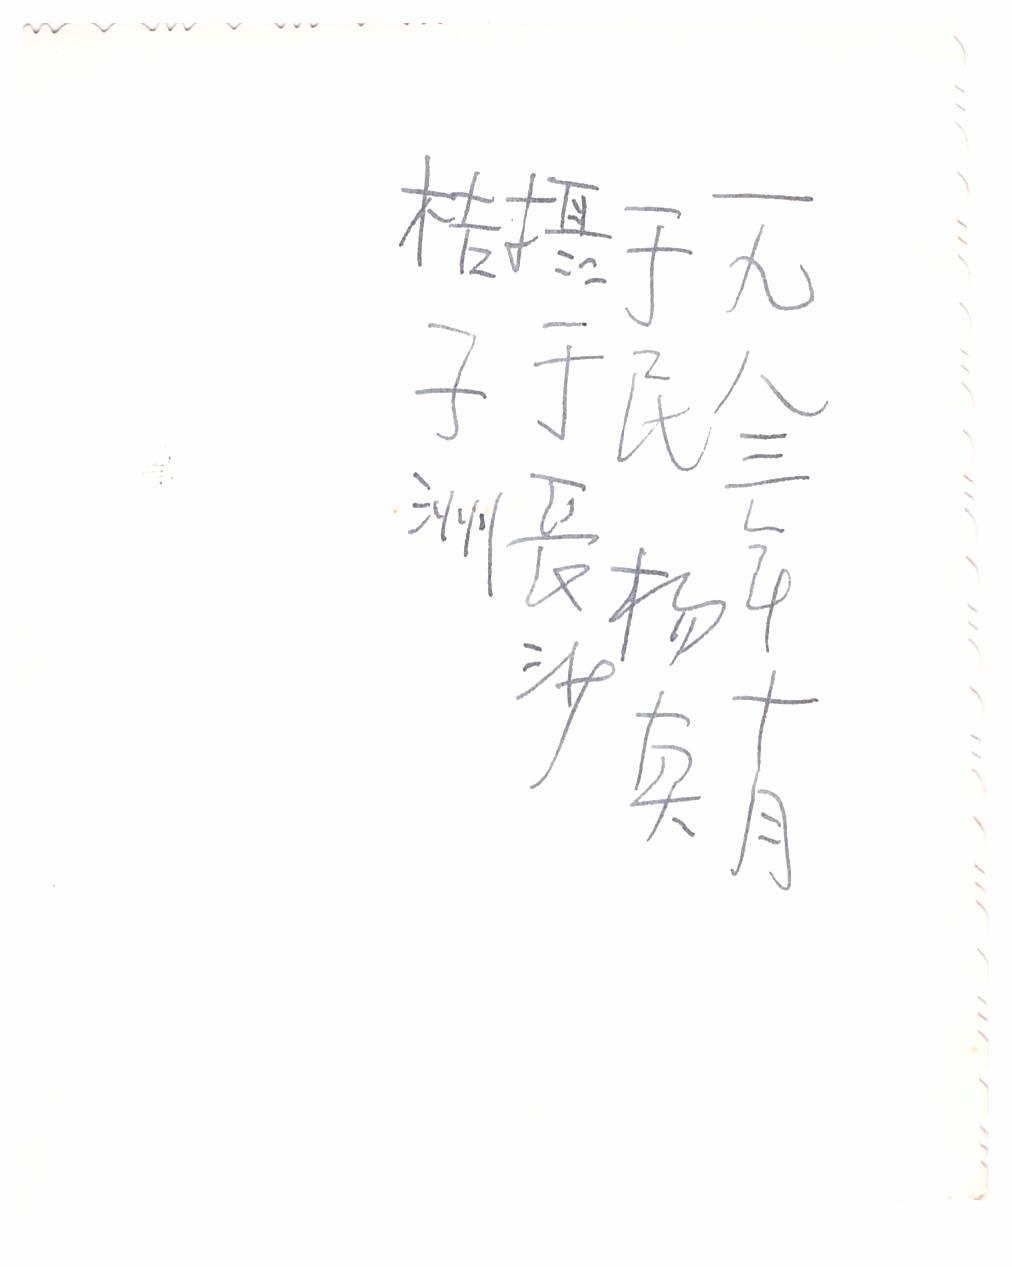 一九八三年十月
于民 杨真
摄于長沙
桔子洲